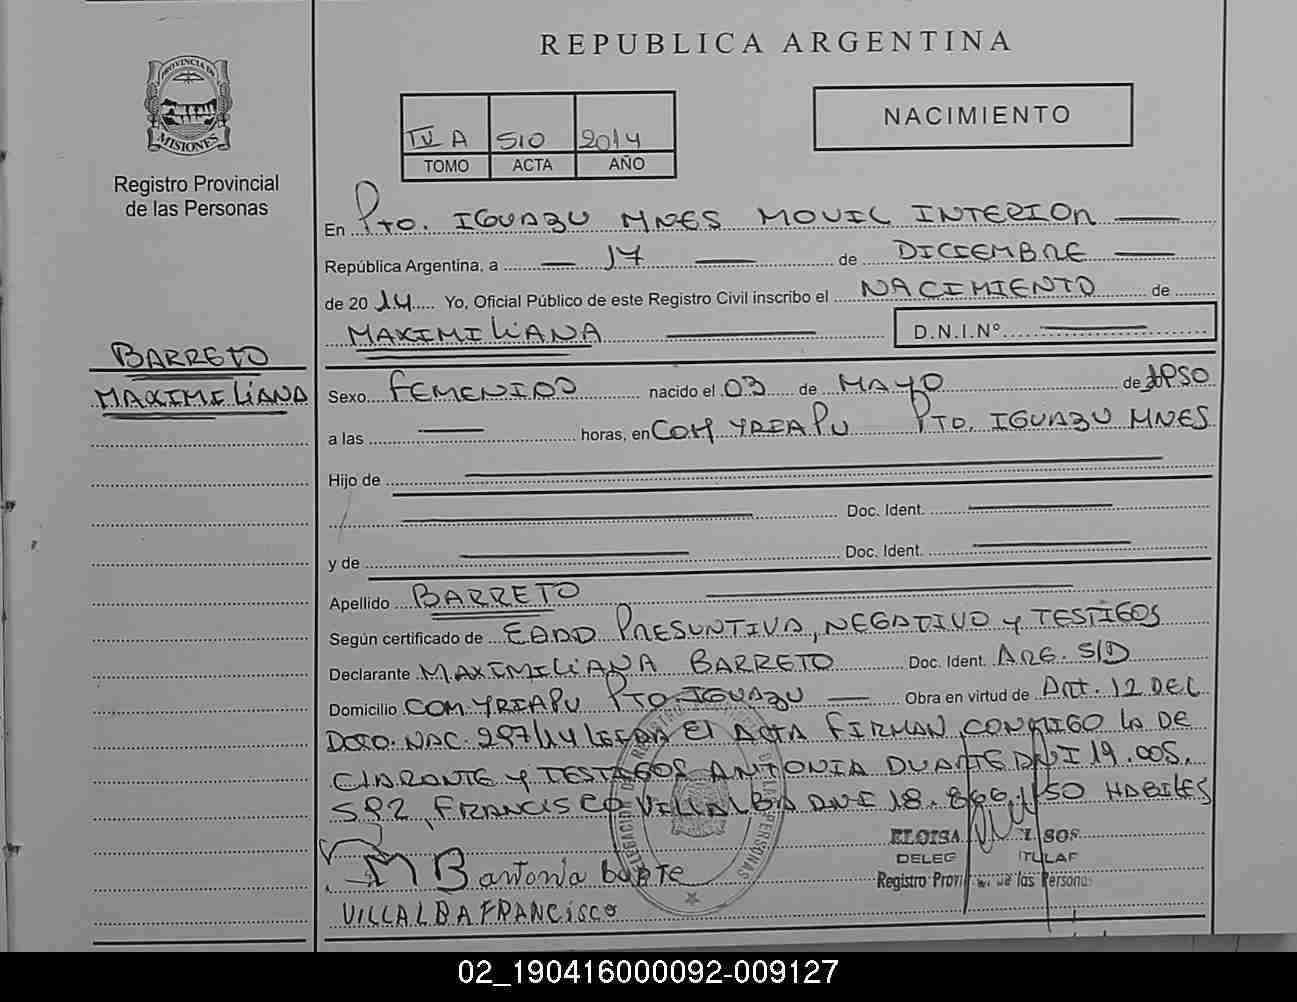 REPUBLICA ARGENTINA
PROVINCIA DE
MISIONES
Registro Provincial
de las Personas
IV A 510 2014
TOMO ACTA AÑO
NACIMIENTO
En Pto. IGUAZU MNES MOVIL INTERIOR
República Argentina, a 17 de DICIEMBRE
de 2014 Yo, Oficial Público de este Registro Civil inscribo el NACIMIENTO de
MAXIMILIANA D.N.I.Nº
BARRETO
MAXIMILIANA
Sexo FEMENINO nacido el 03 de MAYO de 1950
a las horas, en COM YRIAPU PTO. IGUAZU MNES
Hijo de
Doc. Ident.
y de Doc. Ident.
Apellido BARRETO
Según certificado de EDAD PRESUNTIVA, NEGATIVO y TESTIGOS
Declarante MAXIMILIANA BARRETO Doc. Ident. ARG. S/D
Domicilio COM YRIAPU PTO. IGUAZU Obra en virtud de Art. 12 DEC
DCTO. NAC. 297/14 LEIDA El ACTA FIRMAN CONMIGO LA DE
CLARANTE y TESTIGOS ANTONIA DUARTE DNI 19.005.
592, FRANCISCO VILLALBA DNI 18.866.150 HABILES
MB antonia duarte
VILLALBA FRANCisco
ELOISA
DELEG
Registro Provi de las Persona
02_190416000092-009127